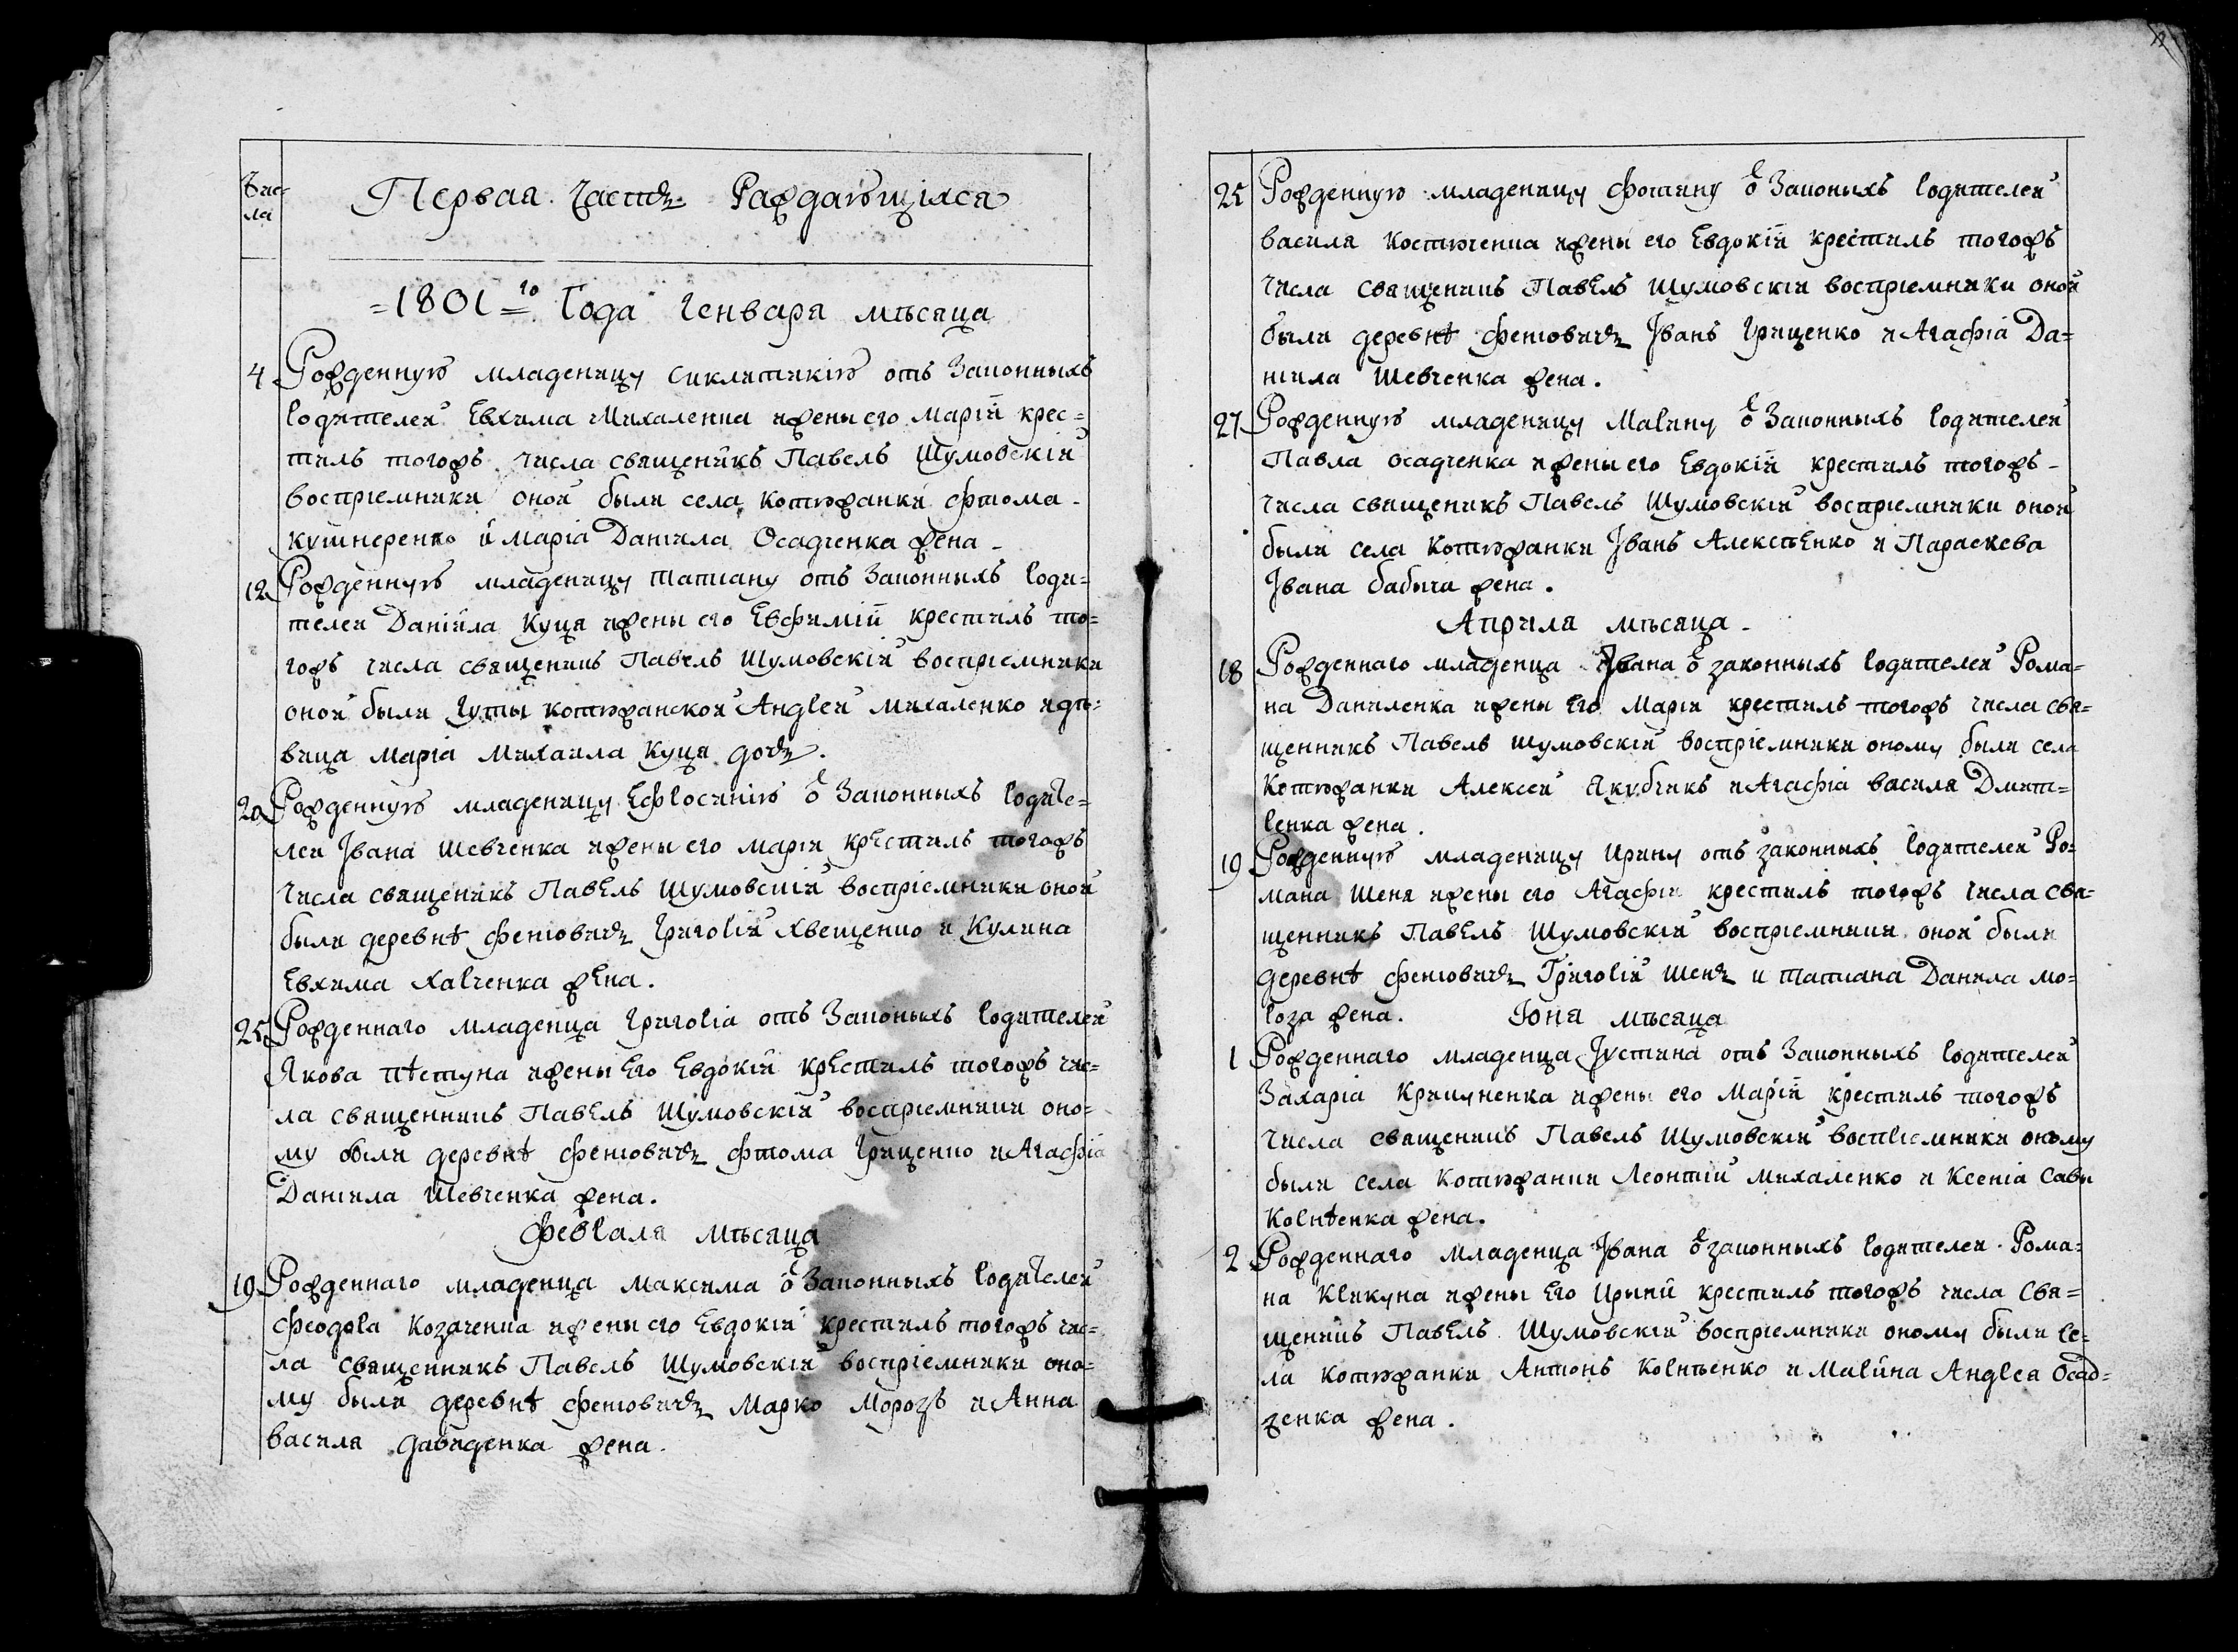 Чис=
ла
Первая часть Раждающіяся
=1801=го Года Генваря мѣсяца
4 Рожденную младеницу Сиклитикію отъ Законныхъ
родителей Евхима Михаленка ижены его Маріи крес=
тилъ тогожъ числа священикъ Павелъ Шумовскій
воспріемники оной были села Котюжанки Фтома
Кушнеренко и Марія Даніила Осадченка жена
12 Рожденную младеницу Татиану отъ Законныхъ роди=
телей Даніила Куця ижены его Евфиміи крестилъ то=
гожъ числа священикъ Павелъ Шумовскій воспріемники
оной были Гуты Котюжанской Андрей Михаленко идѣ=
вица Марія Михаила Куця дочь.
20 Рожденную младеницу Ефросинію о Законныхъ родите=
лей Івана Шевченка ижены его Маріи крестилъ тогожъ
числа священикъ Павелъ Шумовскій воспріемники оной
были деревнѣ Феневичъ Григорій Хвещенко и Кулина
Евхима Харченка жена.
25 Рожденнаго младенца Григорія отъ Законыхъ родителей
Якова Пѣтуна ижены Его Евдокіи крестилъ тогожъ чис=
ла священникъ Павелъ Шумовскій воспріемники оно=
му были деревнѣ Феневичъ Фтома Грищенко и Агафія
Даніила Шевченка жена.
Февраля мѣсяца
19 Рожденнаго младенца Максима о Законныхъ родителей
Феодора Козаченка ижены его Евдокіи крестилъ тогожъ чис=
ла священникъ Павелъ Шумовскій воспріемники оно=
му были деревнѣ Феневичъ Марко Морозъ и Анна
Василя Давиденка жена.
25 Рожденную младеницу Фотину о Законыхъ родителей
Василя Костюченка ижены его Евдокіи крестилъ тогожъ
числа священикъ Павелъ Шумовскій воспріемники оной
были деревнѣ Феневичъ Іванъ Грищенко и Агафія Да=
ніила Шевченка жена.
27 Рожденную младеницу Марину о Законныхъ родителей
Павла Осадченка ижены его Евдокіи крестилъ тогожъ
числа священикъ Павелъ Шумовскій воспріемники оной
были села Котюжанки Іванъ Алексѣенко и Параскева
Івана Бабыча жена.
Априля мѣсяца
18 Рожденнаго младенца Івана о законныхъ родителей Рома=
на Даниленка ижены Его Маріи крестилъ тогожъ числа свя=
щенникъ Павелъ Шумовскій воспріемники оному были села
Котюжанки Алексей Якубчикъ и Агафія Василя Дмит=
ренка жена.
19 Рожденную младеницу Ирину отъ законныхъ родителей Ро=
мана Шеня ижены его Агафіи крестилъ тогожъ числа свя=
щенникъ Павелъ Шумовскій воспріемники оной были
деревнѣ Феневичъ Григорій Шень и Татиана Данила Мо=
роза жена. Іюня мѣсяца
1 Рожденнаго младенца Іустина отъ Законныхъ родителей
Захарія Крикуненка ижены его Маріи крестилъ тогожъ
числа священикъ Павелъ Шумовскій воспріемники оному
были села Котюжанки Леонтій Михаленко и Ксенія Савы
Корнѣенка жена.
2 Рожденнаго младенца Івана о законныхъ родителей Рома=
на Крикуна ижены Его Ирыны крестилъ тогожъ числа свя=
щеникъ Павелъ Шумовскій воспріемники оному были се=
ла Котюжанки Антонъ Корнѣенко и Марина Андрея Осад=
ченка жена.